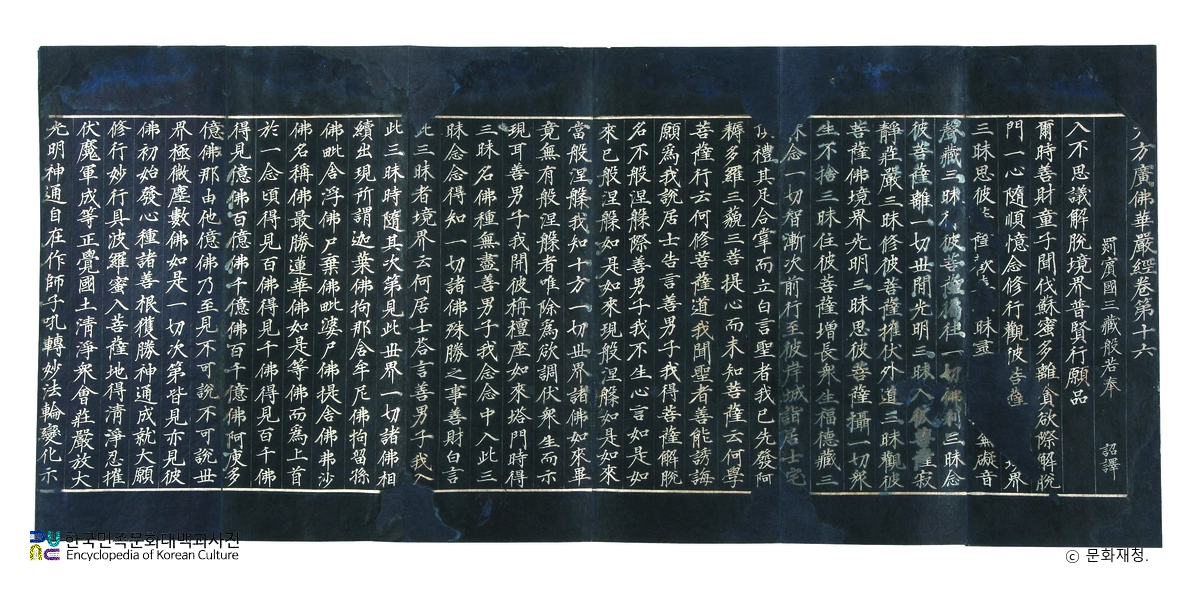 方廣佛華嚴經卷第十六
罽賓國三藏般若奉 詔譯
入不思議解脫境界普賢行願品
爾時善財童子聞伐蘇蜜多離貪欲際解脫
門一心隨順憶念修行觀彼菩薩 界
三昧思彼 無礙音
聲藏三昧 彼菩薩 往一切佛刹三昧念
彼菩薩離一切世間光明三昧入彼 寂
靜莊嚴三昧修彼菩薩摧伏外道三昧觀彼
菩薩佛境界光明三昧思彼菩薩攝一切衆
生不捨三昧住彼菩薩增長衆生福德藏三
昧念一切智漸次前行至彼岸城詣居士宅
禮其足合掌而立白言聖者我已先發阿
耨多羅三藐三菩提心而未知菩薩云何學
菩薩行云何修菩薩道我聞聖者善能誘誨
願爲我說居士告言善男子我得菩薩解脫
名不般涅槃際善男子我不生心言如是如
來已般涅槃如是如來現般涅槃如是如來
當般涅槃我知十方一切世界諸佛如來畢
竟無有般涅槃者唯除爲欲調伏衆生而示
現耳善男子我開彼栴檀座如來塔門時得
三昧名佛種無盡善男子我念念中入此三
昧念念得知一切諸佛殊勝之事善財白言
此三昧者境界云何居士荅言善男子我入
此三昧時隨其次第見此世界一切諸佛相
續出現所謂迦葉佛拘那含牟尼佛拘留孫
佛毗舍浮佛尸棄佛毗婆尸佛提舍佛弗沙
佛名稱佛最勝蓮華佛如是等佛而爲上首
於一念頃得見百佛得見千佛得見百千佛
得見億佛百億佛千億佛百千億佛阿庾多
億佛那由他億佛乃至見不可說不可說世
界極微塵數佛如是一切次第皆見亦見彼
佛初始發心種諸善根獲勝神通成就大願
修行妙行具波羅蜜入菩薩地得清淨忍摧
伏魔軍成等正覺國土清淨衆會莊嚴放大
光明神通自在作師子吼轉妙法輪變化示
한국민족문화대백과사전
Encyclopedia of Korean Culture
ⓒ 문화재청.